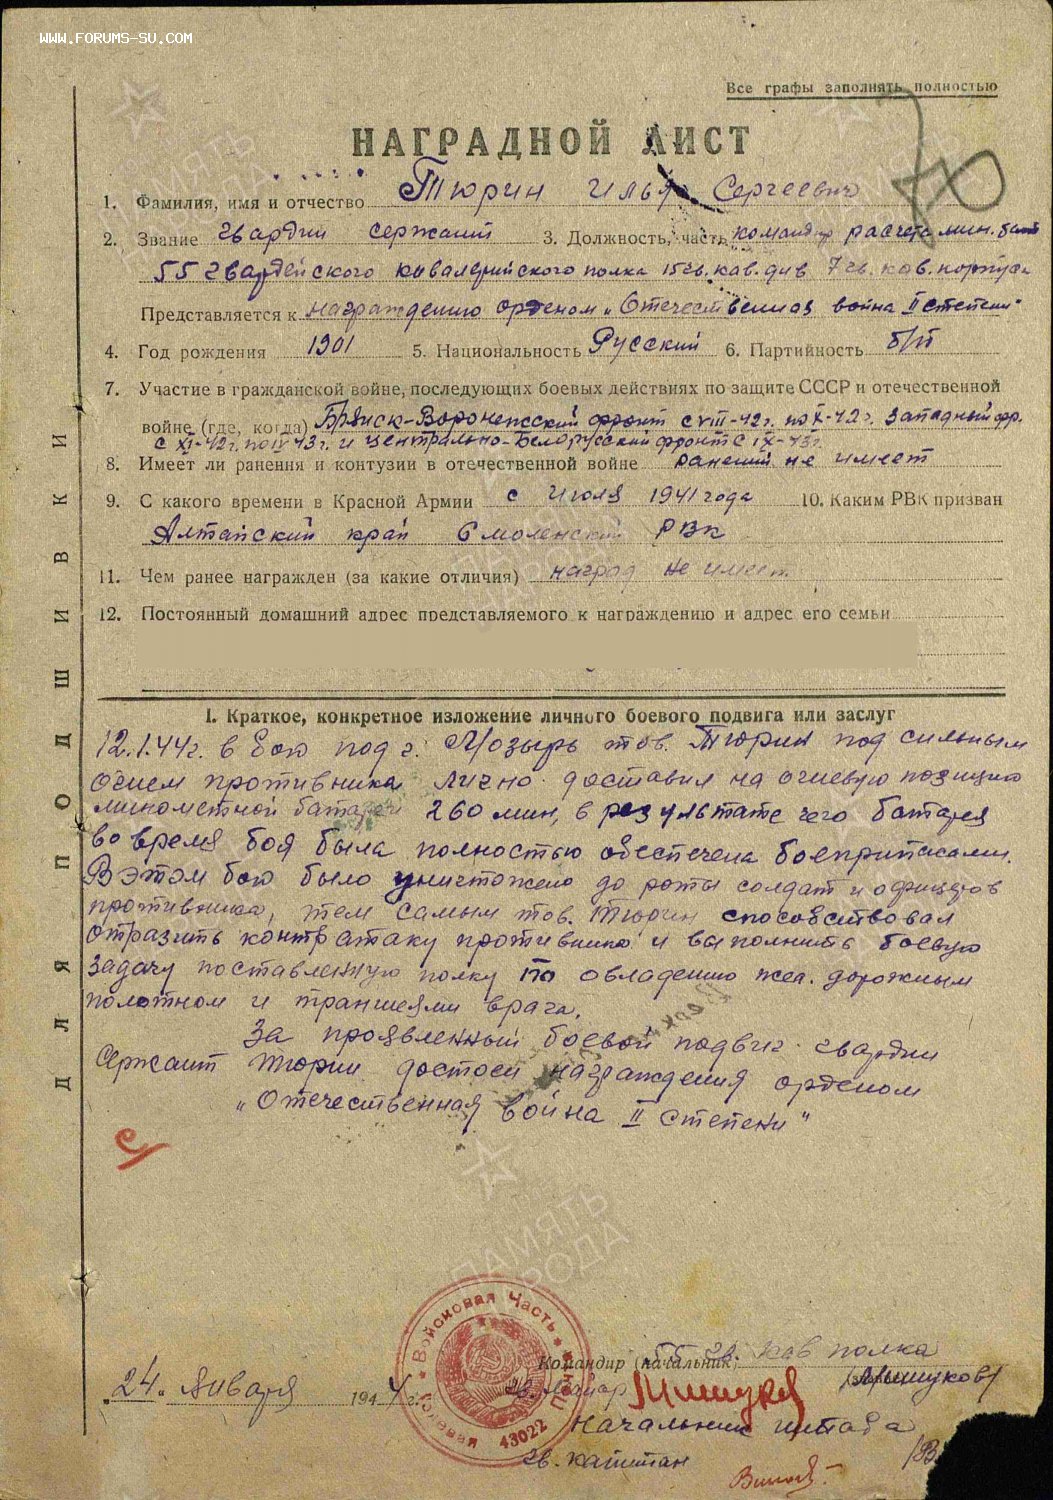 WWW.FORUMS-SU.COM
Все графы заполнять полностью
НАГРАДНОЙ ЛИСТ
1. Фамилия, имя и отчество Тюрин Илья Сергеевич
2. Звание гвардии сержант 3. Должность, часть командир расчета мин. бат.
55 гвардейского кавалерийского полка 15 гв. кав. див. 7 гв. кав. корпуса
Представляется к награждению орденом „Отечественная война II степени"
4. Год рождения 1901 5. Национальность Русский 6. Партийность б/п
7. Участие в гражданской войне, последующих боевых действиях по защите СССР и отечественной
войне (где, когда) Брянск-Воронежсский фронт с VIII-42г. по X-42г. Западный фр.
с XI-42г. по IV 43г. и Центрально-Белорусский фронт с IX-43г.
8. Имеет ли ранения и контузии в отечественной войне ранений не имеет
9. С какого времени в Красной Армии с Июля 1941 года 10. Каким РВК призван
Алтайский край Смоленский РВК
11. Чем ранее награжден (за какие отличия) наград не имеет
12. Постоянный домашний адрес представляемого к награждению и адрес его семьи
ДЛЯ ПОДШИВКИ
I. Краткое, конкретное изложение личного боевого подвига или заслуг
12.1.44г. в бою под г. Мозырь тов. Тюрин под сильным
огнем противника лично доставил на огневую позицию
минометной батареи 260 мин, в результате чего батарея
во время боя была полностью обеспечена боеприпасами.
В этом бою было уничтожено до роты солдат и офицеров
противника, тем самым тов. Тюрин способствовал
отразить контратаку противника и выполнить боевую
задачу поставленную полку по овладению жел. дорожным
полотном и траншеями врага.
За проявленный боевой подвиг гвардии
Сержант Тюрин достоен награждения орденом
„Отечественная война II степени"
ПАМЯТЬ НАРОДА
Войсковая Часть
Полевая Почта
43022
Командир (начальник) 55 гв. кав полка
24 января 1944 г. гв. майор (Мишуков)
Начальник штаба
гв. капитан